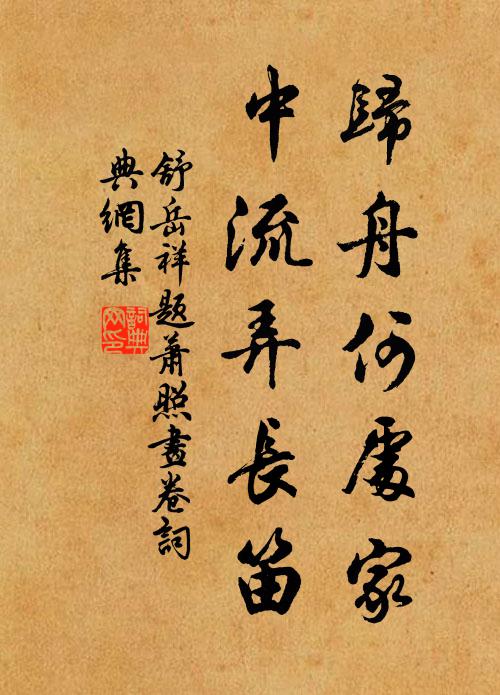 歸舟何處家
中流弄長笛
舒岳祥題蕭照畫卷詞
典網集
詞典
网印